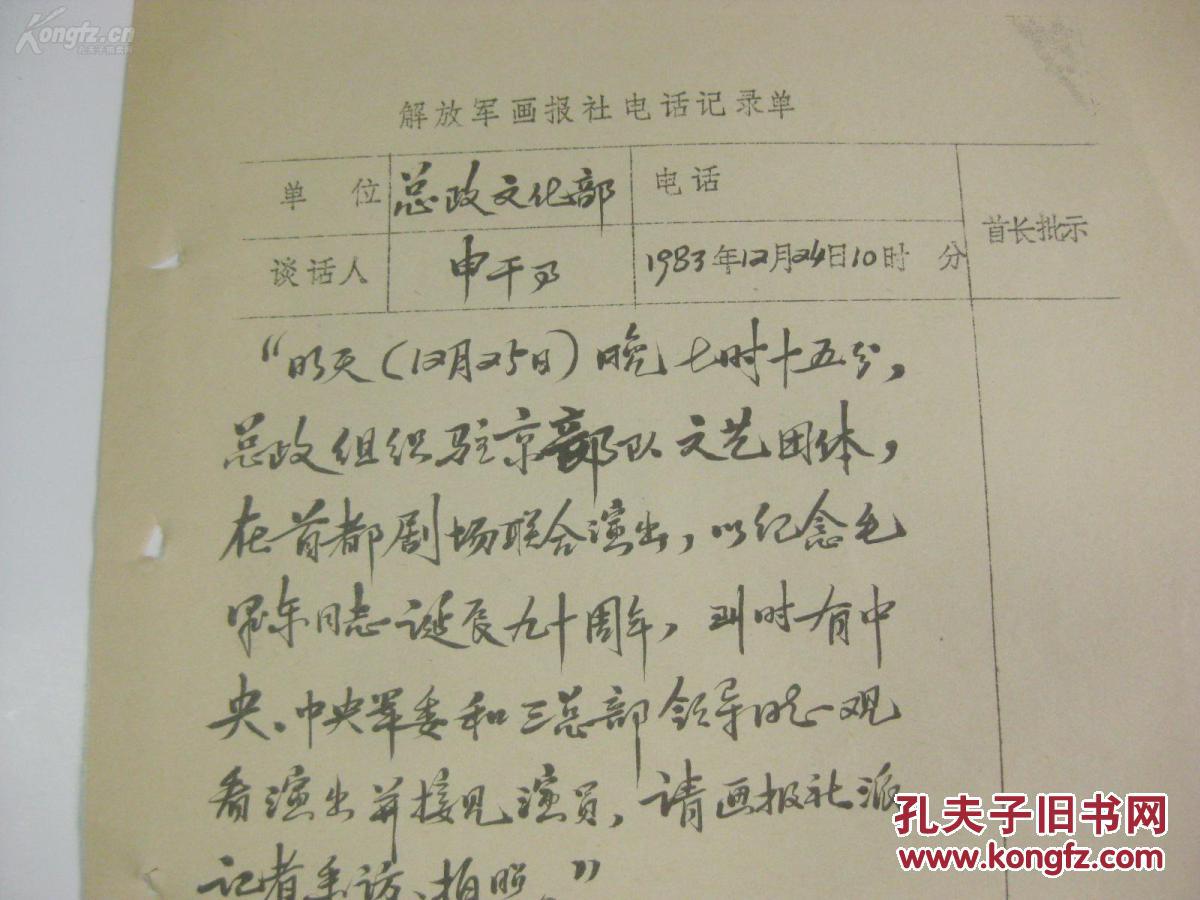 Kongfz.cn
孔夫子拍卖网
解放军画报社电话记录单
单位 总政文化部 电话 首长批示
谈话人 申干事 1983年12月24日10时 分
“明天（12月25日）晚七时十五分，
总政组织驻京部队文艺团体，
在首都剧场联合演出，以纪念毛
泽东同志诞辰九十周年，到时有中
央、中央军委和三总部领导同志观
看演出并接见演员，请画报社派
记者采访、拍照。”
孔夫子旧书网
www.kongfz.com